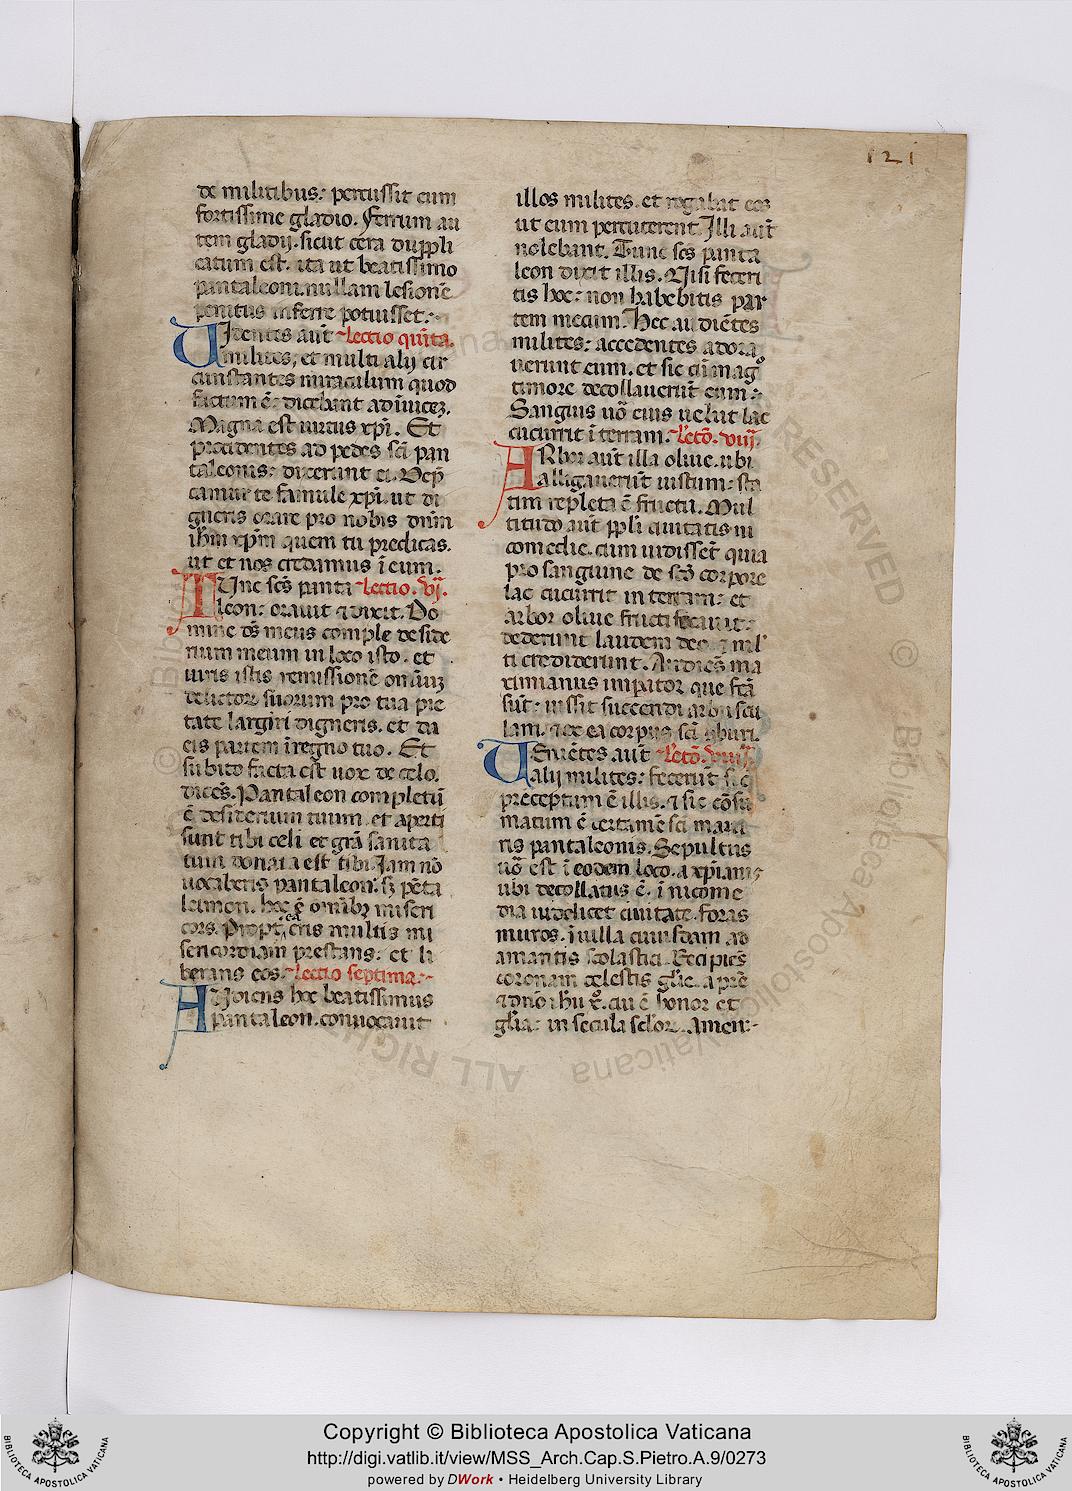 121
de militibus: percussit eum
fortissime gladio. Ferrum au
tem gladij. sicut cera duppli
catum est. ita ut beatissimo
pantaleoni. nullam lesionē
penitus inferre potuisset:
Uidentes aut̄ Lectio quīta.
milites, et multi alij cir
cunstantes miraculum quod
factum ē: dicebant adinuicez.
Magna est uirtus xp̄i. Et
procidentes ad pedes sc̄i pan
taleonis: dixerunt ei. Dep̄
camur te famule xp̄i. ut di
gneris orare pro nobis dn̄m
ih̄m xp̄m quem tu predicas.
ut et nos credamus ī eum.
Tunc sc̄s panta Lectio. vj.
leon: orauit ⁊ dixit. Do
mine d̄s meus comple deside
rium meum in loco isto. et
uiris istis remissionē omīuz
delictoꝝ suorum pro tua pie
tate largiri digneris. et da
eis partem ī regno tuo. Et
subito facta est uox de celo.
dicēs. Pantaleon completū
ē desiderium tuum. et aperti
sunt tibi celi et grā sanita
tum donata est tibi. Iam nō
uocaberis pantaleon: sꝫ pēta
leimon. hoc ē om̄ibꝫ miseri
cors. Propt̄ ea eris multis mi
sericordiam prestans: et li
berans eos. Lectio septima:
Audiens hoc beatissimus
pantaleon. conuocauit
illos milites. et rogabat eos
ut eum percuterent. Illi aut̄
nolebant. Tunc sc̄s panta
leon dixit illis. Nisi feceri
tis hoc: non habebitis par
tem mecum. Hec audiētes
milites: accedentes adora
uerunt eum. et sic cū mag̊
timore decollauerūt eum:
Sanguis uō eius uelut lac
cucurrit ī terram. Lectō. viij.
Arbor aut̄ illa oliue. ubi
alligauerūt iustum: sta
tim repleta ē fructu. Mul
titudo aut̄ ppl̄i ciuitatis ni
comedie. cum uidisset̄ quia
pro sanguine de sc̄o corpore
lac cucurrit in terram: et
arbor oliue fructificauit:
dederunt laudem deo. ⁊ mul
ti crediderunt. Audiēs ma
ximianus imp̄ator que fc̄a
sūt: iussit succendi arbuscu
lam. ⁊ ex ea corpus sc̄i cōburi.
Uenētes aut̄ Lectō. viiij.
alij milites: fecerūt sic̄
preceptum ē illis. ⁊ sic cōsu
matum ē certamē sc̄i marti
ris pantaleonis. Sepultus
uō est ī eodem loco. a xp̄ianis
ubi decollatus ē. ī nicome
dia uidelicet ciuitate. foras
muros. ī uilla cuiusdam ad
amantis scolastici. Recipiēs
coronam celestis gl̄ie. a p̄re
⁊ dn̄o ih̄u x̄. cui ē honor et
gl̄ia: in secula sc̄loꝝ. Amen:
Copyright © Biblioteca Apostolica Vaticana
http://digi.vatlib.it/view/MSS_Arch.Cap.S.Pietro.A.9/0273
powered by DWork • Heidelberg University Library
BIBLIOTECA APOSTOLICA VATICANA
BIBLIOTECA APOSTOLICA VATICANA